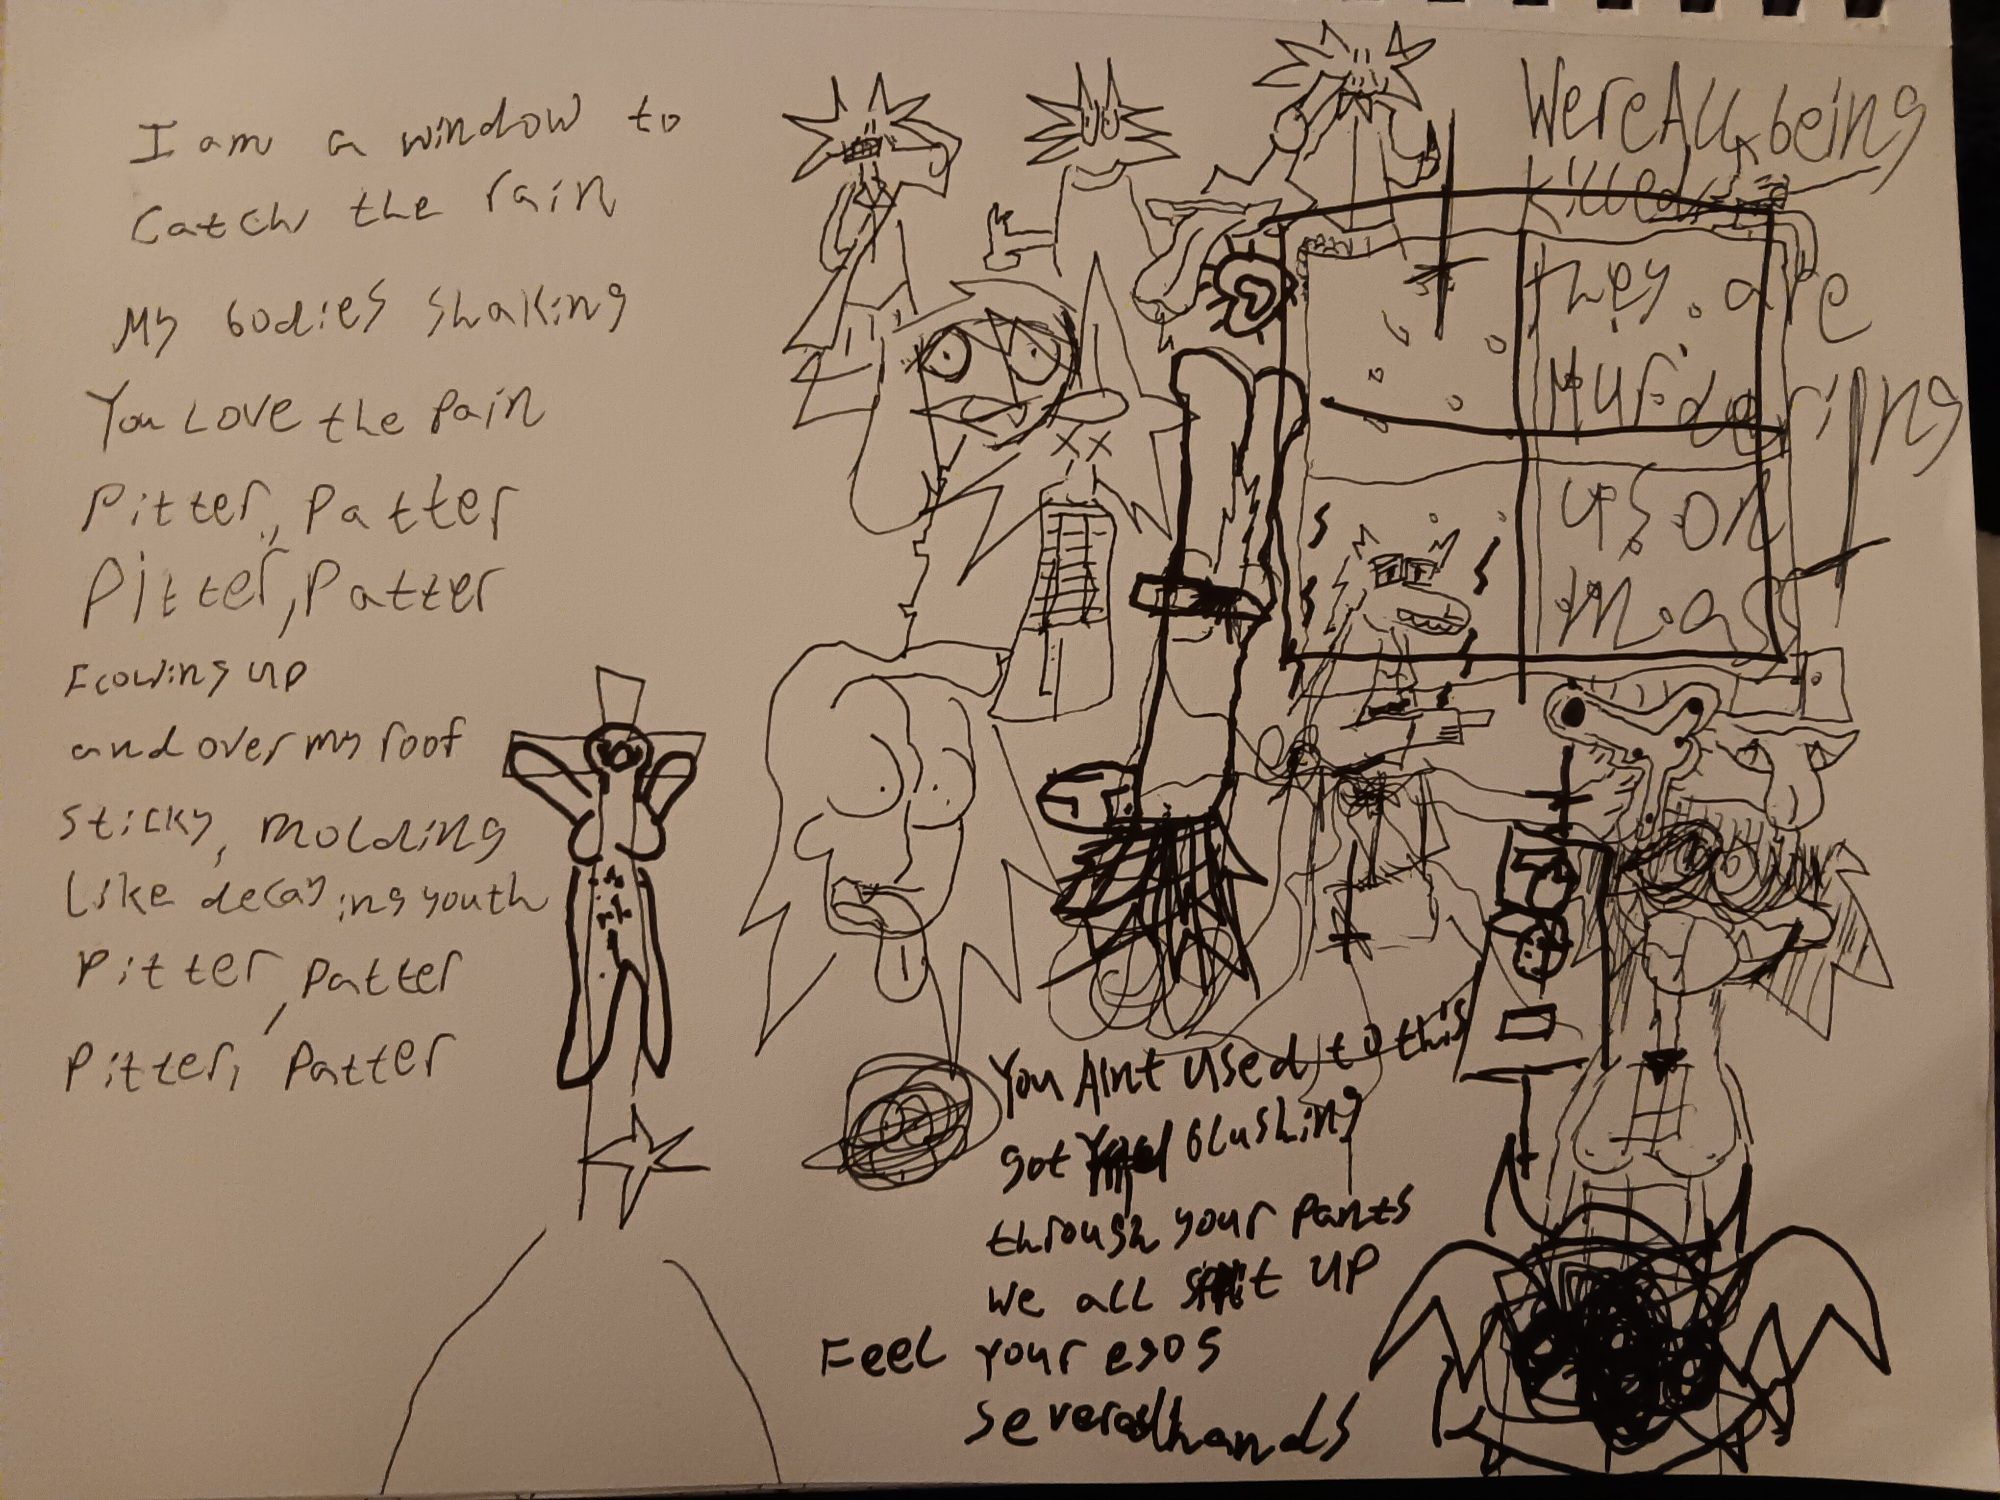 I am a window to
Catch the rain
My bodies shaking
You Love the pain
Pitter, Patter
Pitter, Patter
Flowing up
and over my roof
Sticky, molding
Like decaying youth
Pitter, Patter
Pitter, Patter
Were All being
killed
they. are
Murdering
us on
mass
You Aint used to this
got blushing
through your pants
we all up
Feel your egos
hands